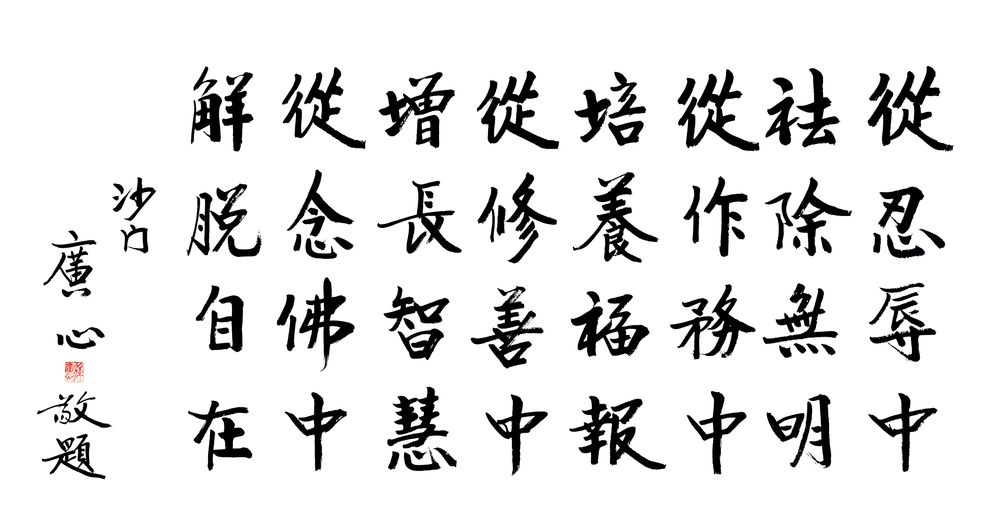 從忍辱中
祛除無明
從作務中
培養福報
從修善中
增長智慧
從念佛中
解脱自在
沙门
廣心敬題